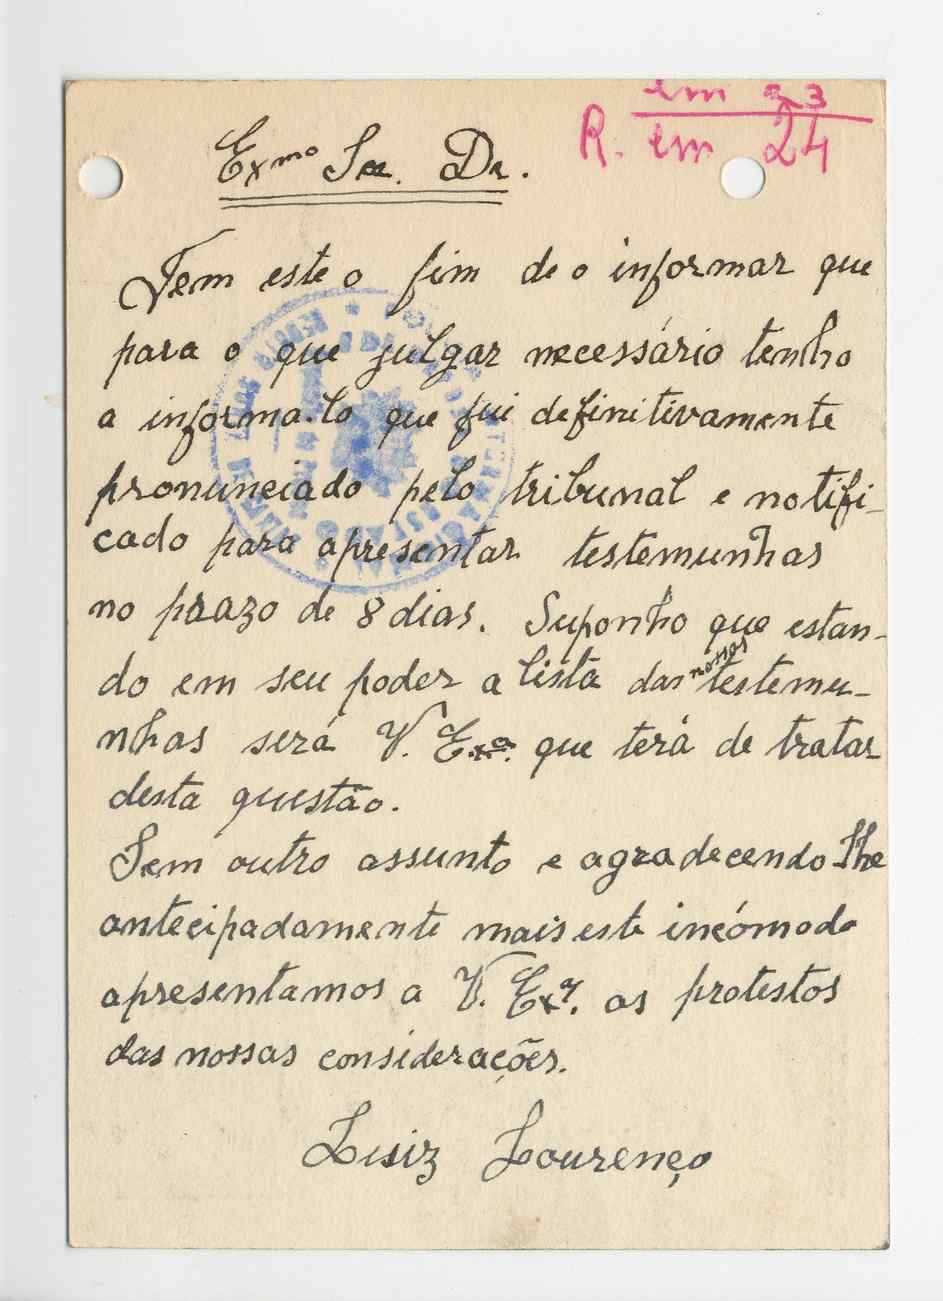 em 23
R. em 24
Exmo Snr. Dr.
Tem este o fim de o informar que
para o que julgar necessário tenho
a informa-lo que fui definitivamente
pronunciado pelo tribunal e notifi-
cado para apresentar testemunhas
no prazo de 8 dias. Suponho que estan-
do em seu poder a lista das nossas testemu-
nhas será V. Exa. que terá de tratar
desta questão.
Sem outro assunto e agradecendo lhe
antecipadamente mais este incómodo
apresentamos a V. Exa. os protestos
das nossas considerações.
Luiz Lourenço